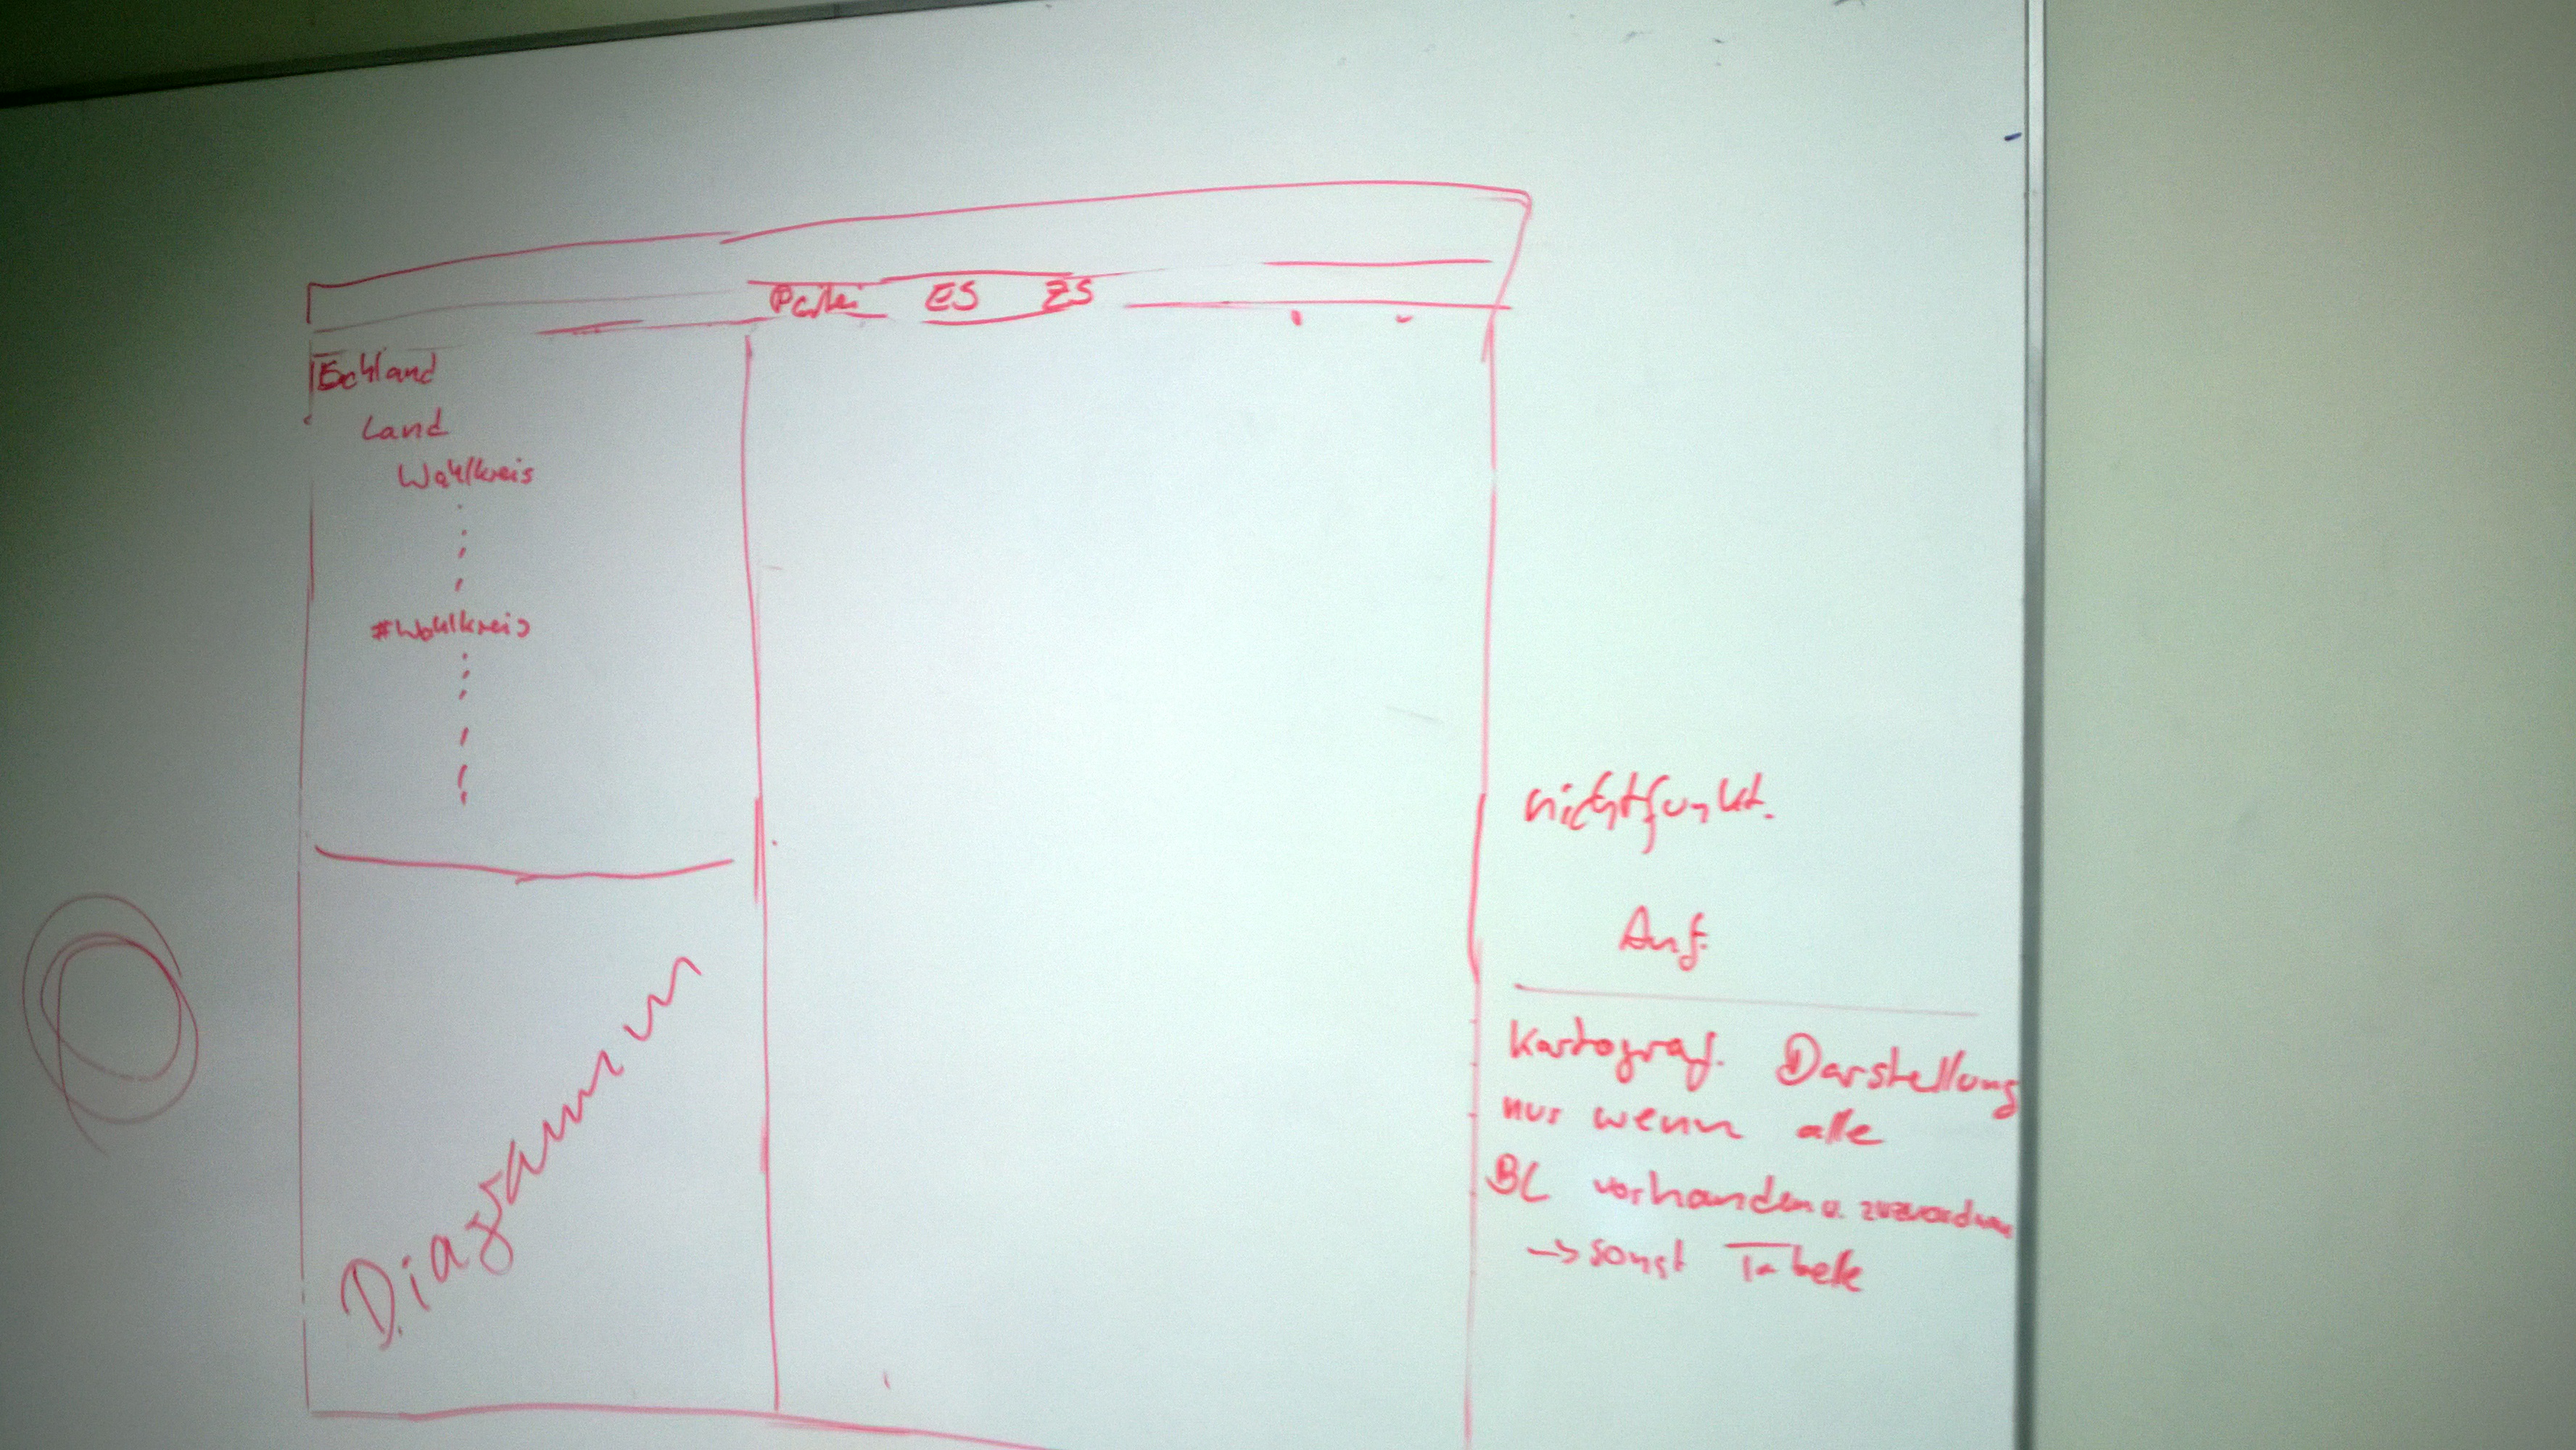 Partei ES ZS
Land
Wahlkreis
#Wahlkreis
Diagramm
nichtfunkt.
Anf.
Kartograf. Darstellung
nur wenn alle
BL vorhanden u. zuzuordnen
→ sonst Tabelle